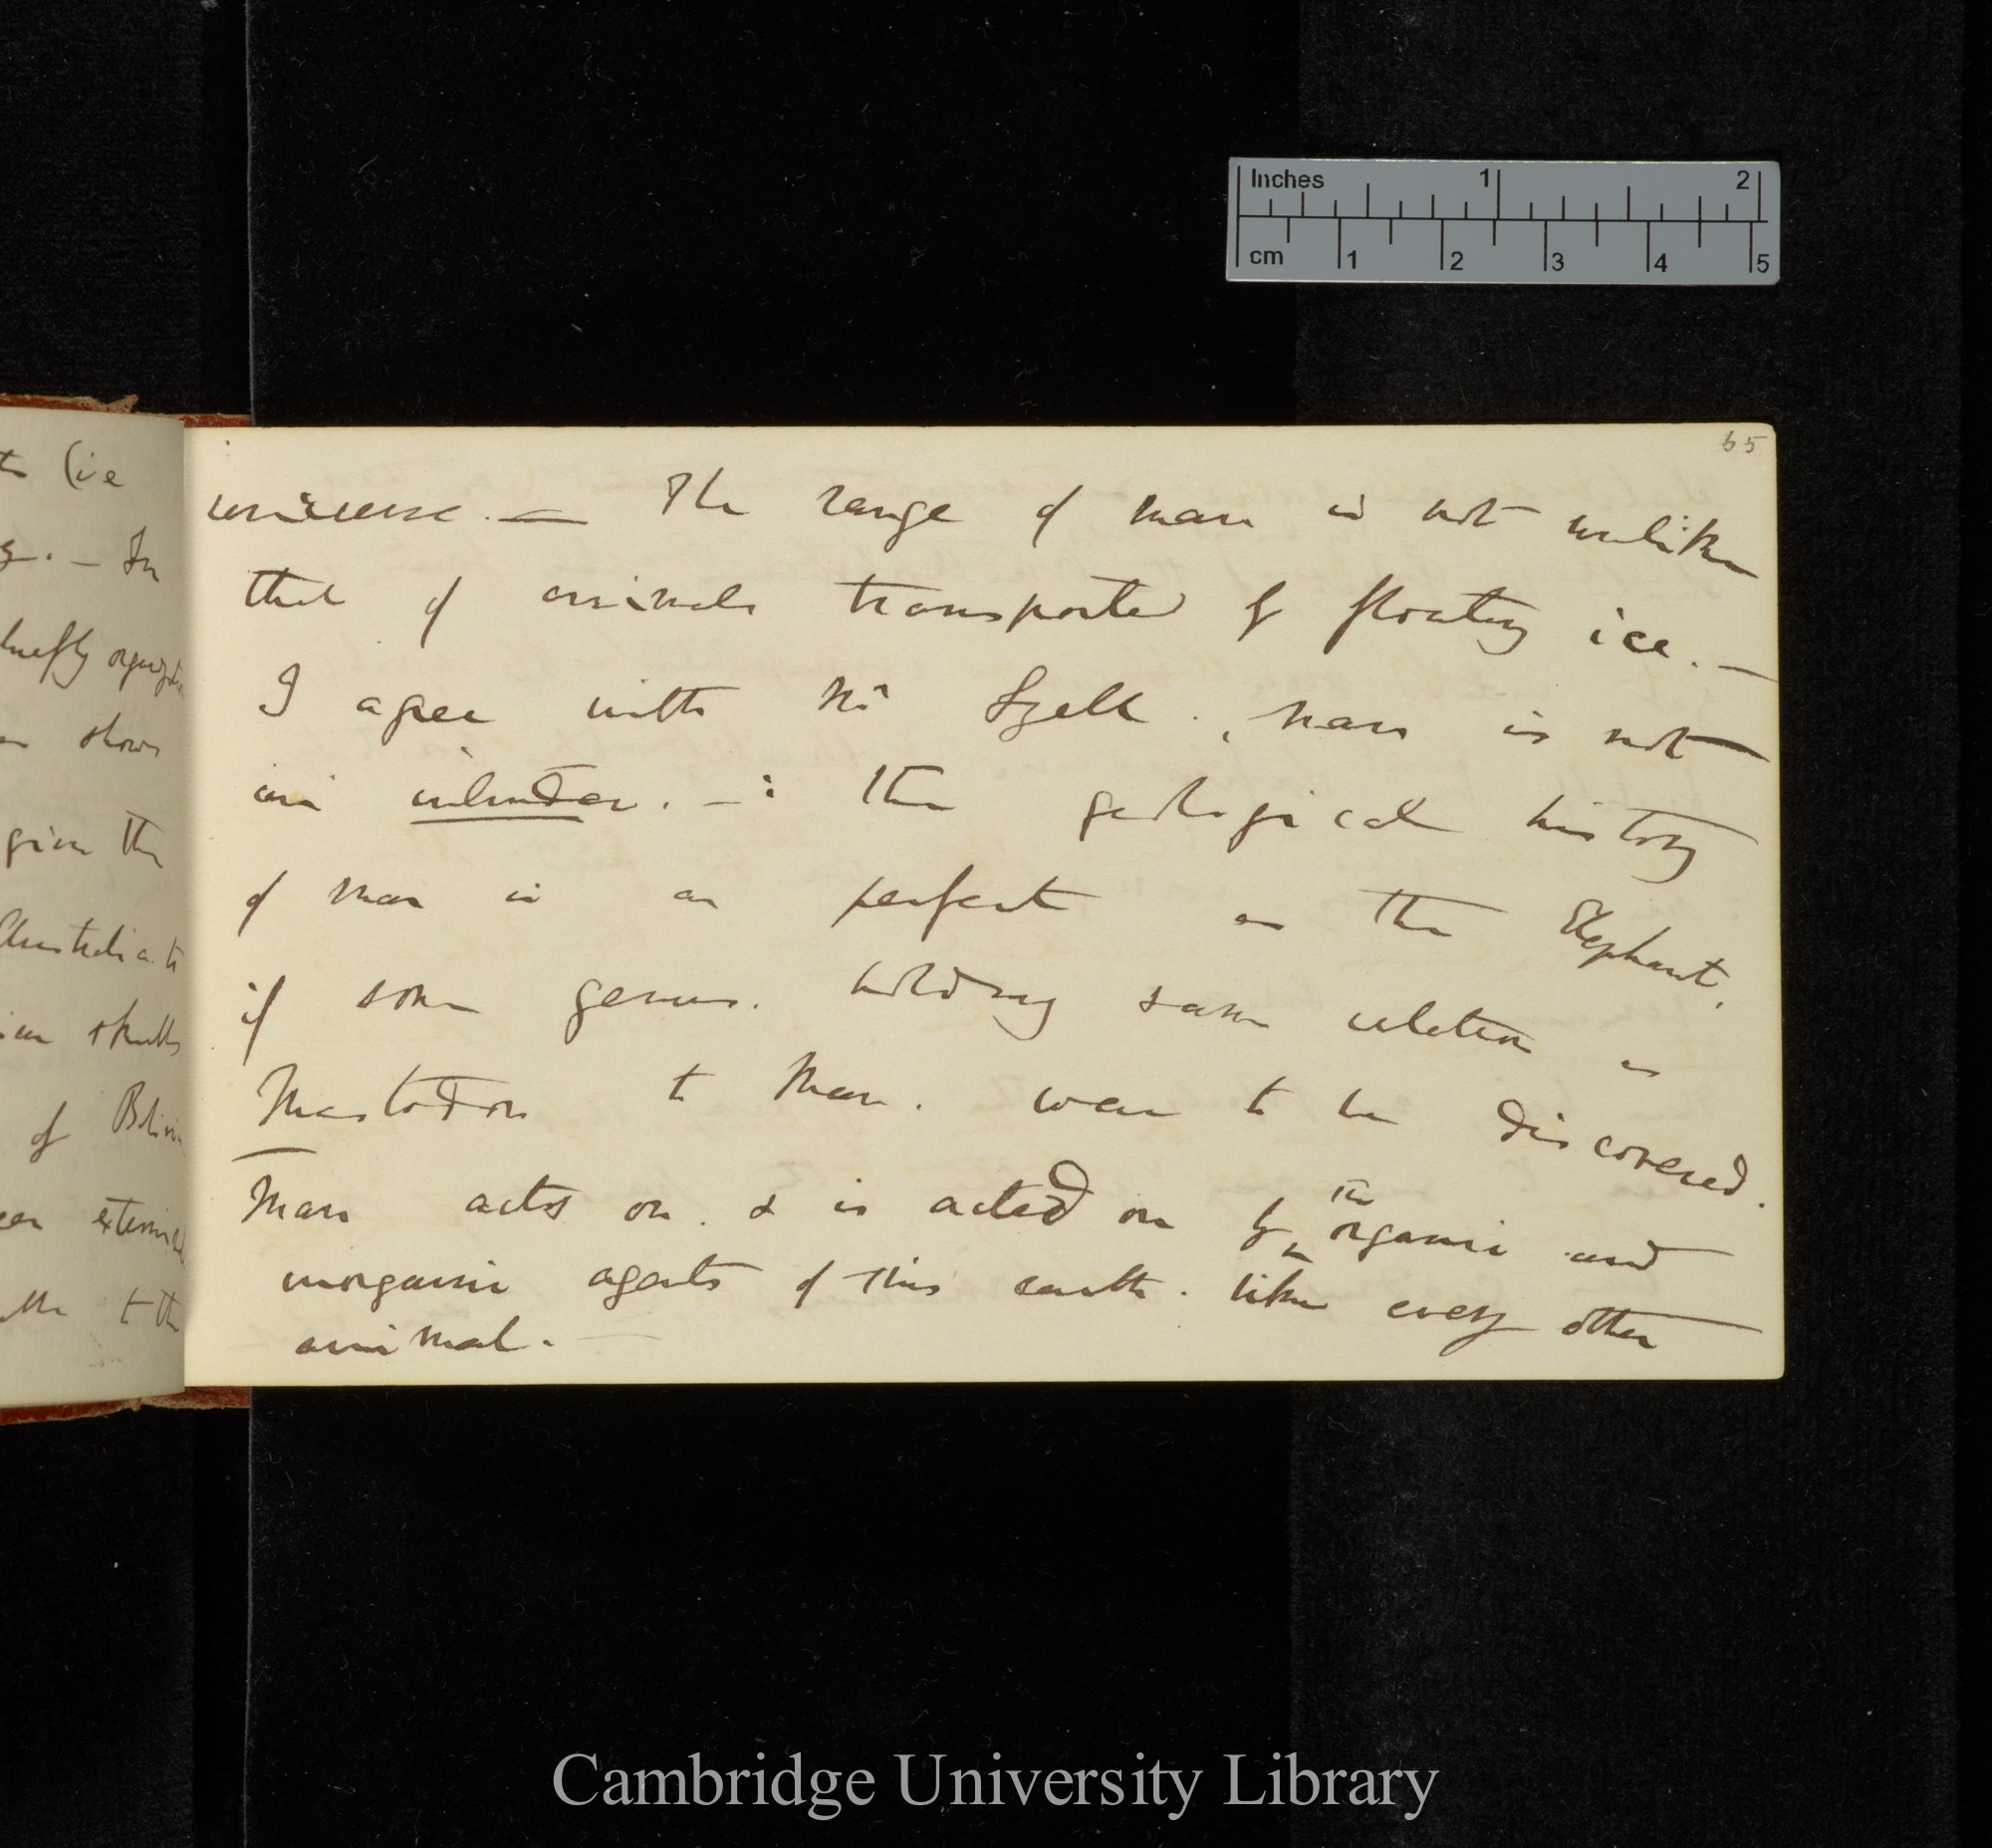 Inches 1 2
cm 1 2 3 4 5
ts (ie
. – In
chiefly
shows
given the
Australia. to
skulls
of
to the
65
universe. — The range of man is not unlike
that of animals transported by floating ice. —
I agree with Mr Lyell. , man is not
an intruder. —: the geological history
of man is as perfect as the Elephant,
if some genus. holding same relation as
Mastodon to Man. were to be discovered.
Man acts on. & is acted on by the organic and
inorganic agents of this earth. like every other
animal. —
Cambridge University Library